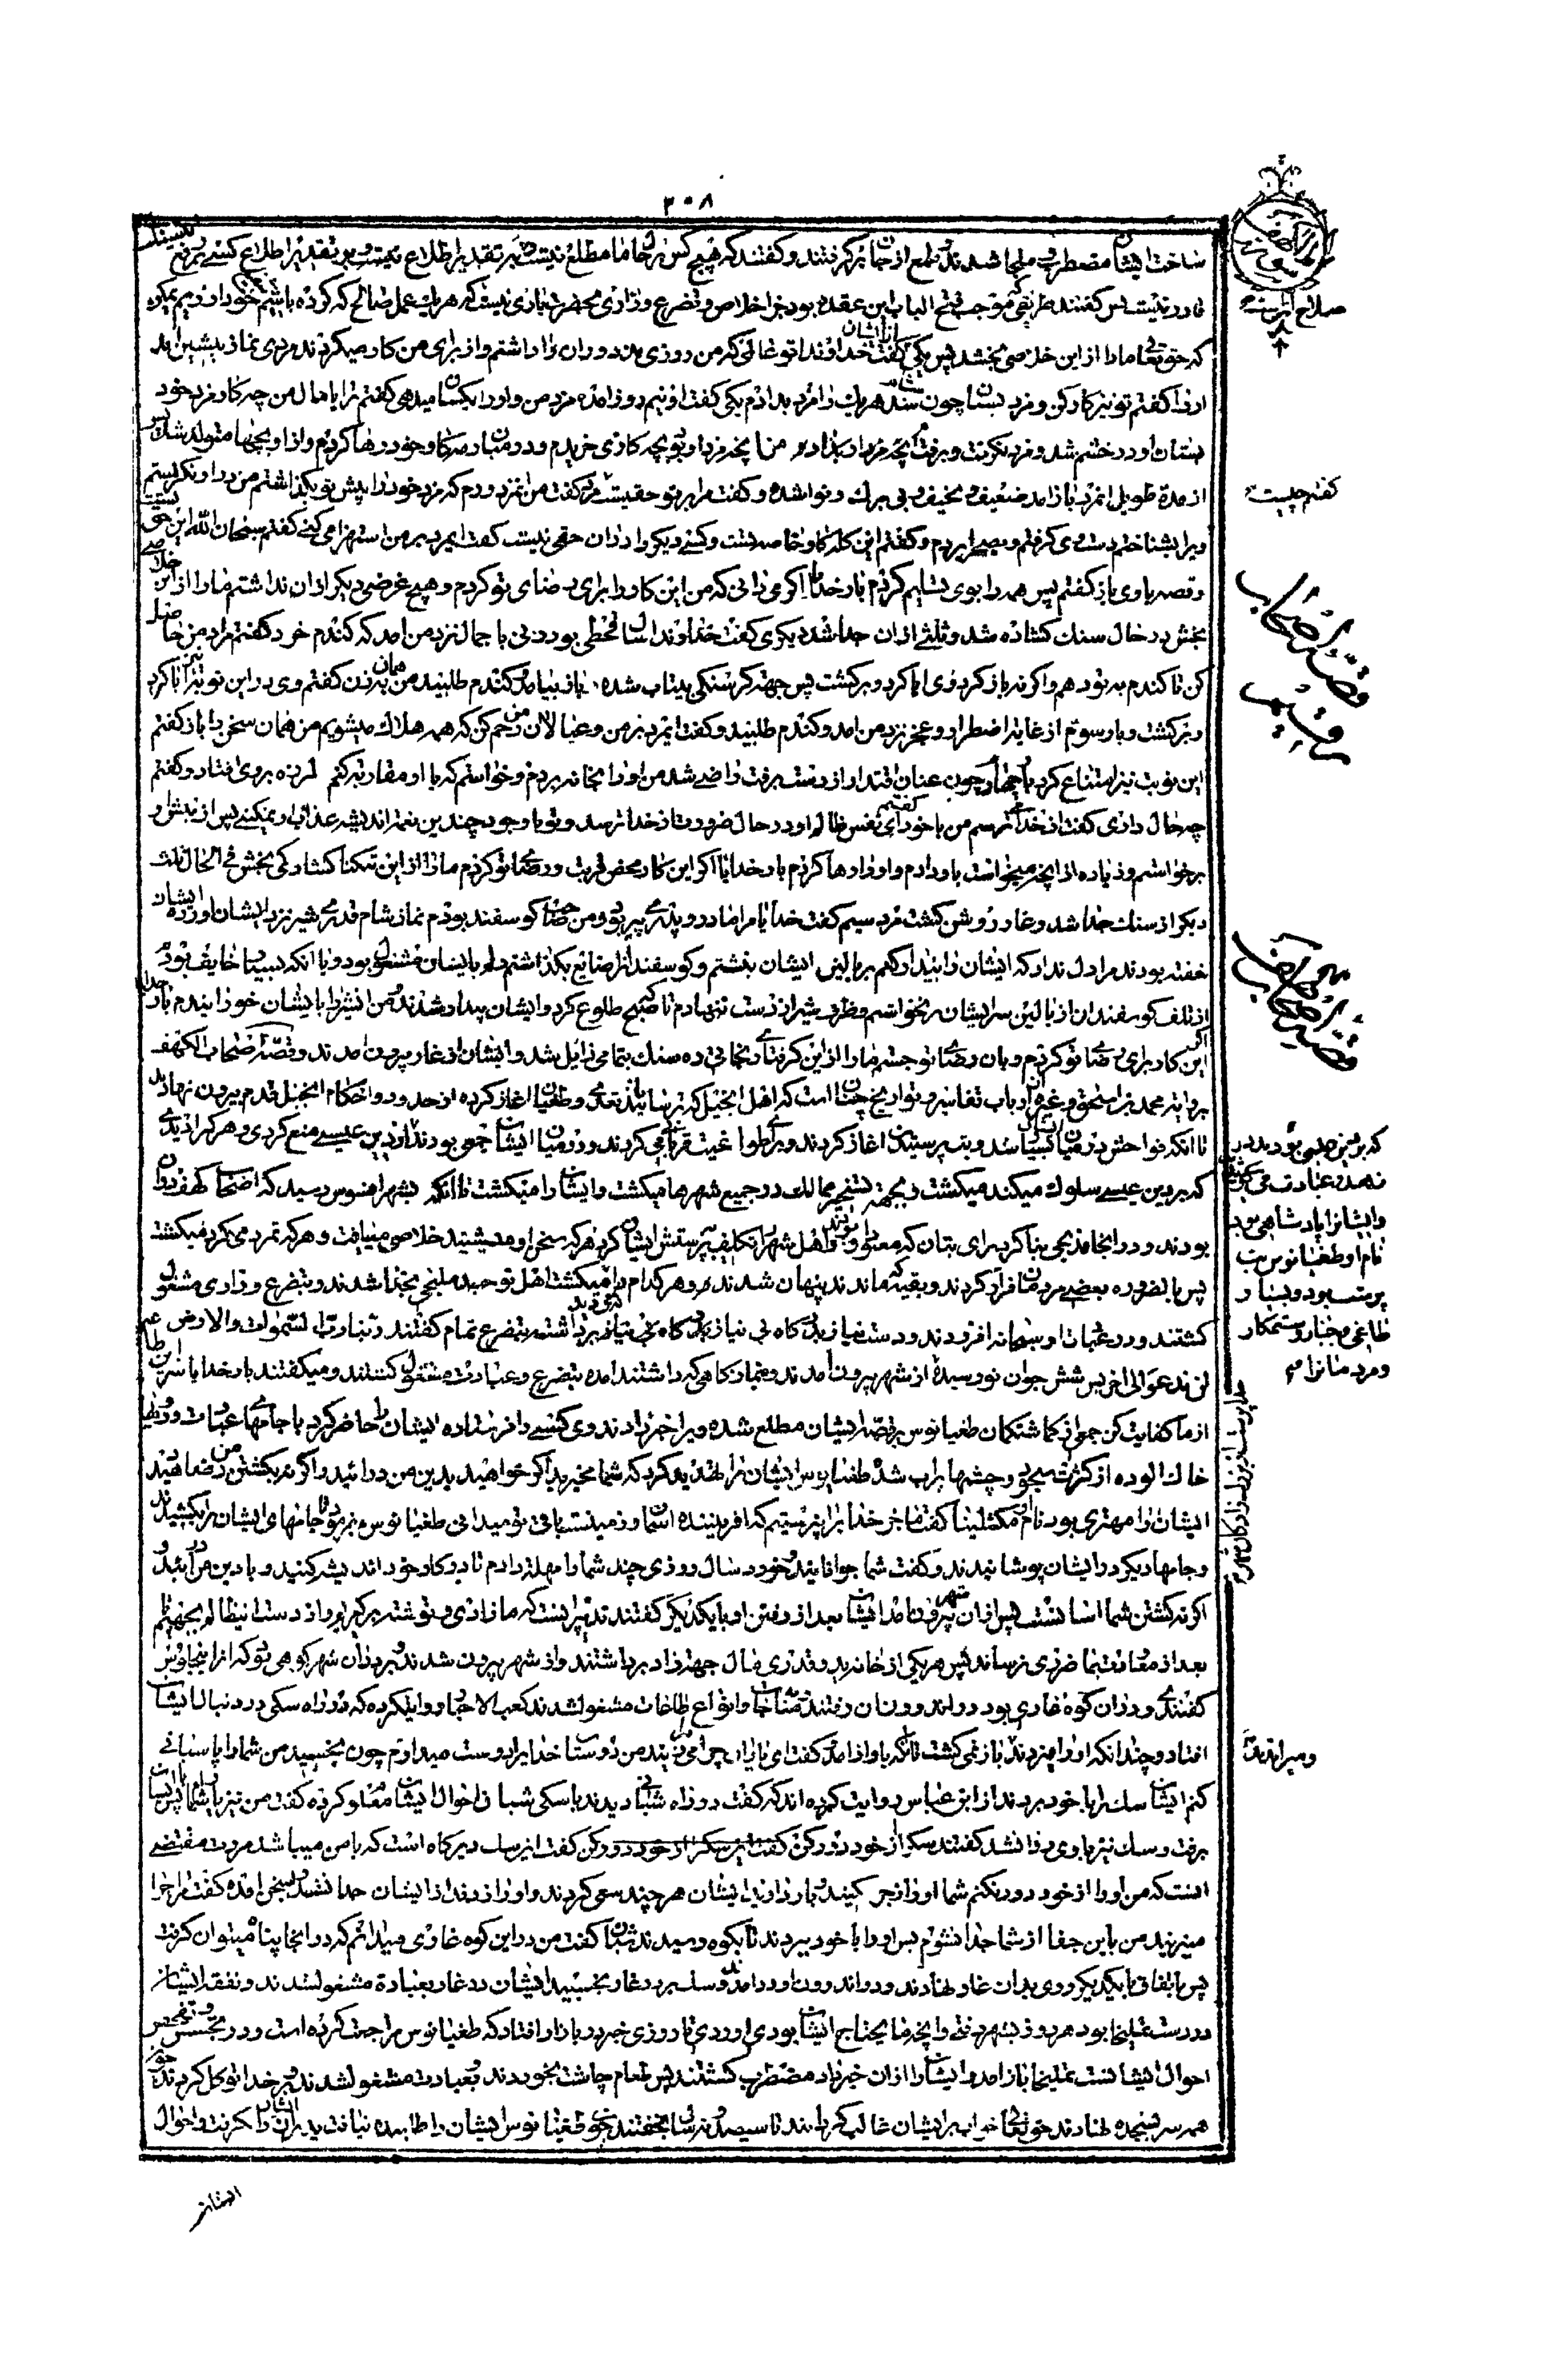 ۲۰۸
ساخت ایشان مضطر و ملجا شدند و طمع از جان برگرفتند و گفتند که هیچ کس بر حال ما مطلع نیست و بر تقدیر اطلاع کسی بر رفع
قادر نیست پس گفتند طریقی که موجب فتح الباب این عقده بود جز اخلاص و تضرع و زاری بحضرت باری نیست که هر یک عمل صالح که کرده باشیم
که حق تعالی ما را از این خلاصی بخشد پس یکی از ایشان گفت خداوندا تو عالمی که من روزی مزدوران را داشتم و از برای من کار میکردند مردی نماز پیشین آمد
او را گفتم تو نیز کار کن و مزد بستان چون شام شد هر یک را مزد بدادم یکی گفت او نیم روز آمده مزد من و او را یکسان میدهی گفتم ترا با مال من چه کار مزد خود
بستان او در خشم شد و مزد نگرفت و برفت من بانچه مزد او بود بچه گاوی خریدم و در میان رمه گاو خود رها کردم و از او بچها متولد شد پس
از مدة طویل انمرد باز آمد ضعیف و نحیف و بی برک و نوا شده و گفت مرا بر تو حقیست گفتم چیست گفت من انمزدورم که مزد خود را پیش تو بگذاشتم من در او نگریستم
ویرا بشناختم دست وی گرفتم و بصحرا بردم و گفتم این گله گاو خاصه تست و کسی دیگر را در ان حقی نیست گفت ایمرد بر من استهزا می کنی گفتم سبحان الله این حق تست
و قصه با وی باز گفتم پس همه را بوی تسلیم کردم بار خدایا اگر می دانی که من این کار را برای رضای تو کردم و هیچ غرضی دیگر از ان نداشتم ما را از این خلاصی
بخش در حال سنک گشاده شد و ثلثی از ان جدا شد دیگری گفت خداوندا سال قحطی بود زنی با جمال نزد من آمد که گندم خرد گفتم مراد من حاصل
کن تا گندم به تو دهم و اگر نه باز گرد وی ابا کرد و برگشت پس جهة گرسنگی بیتاب شده باز بیامد و گندم طلبید من همان بدو گفتم وی در این نوبت نیز ابا کرد
و برگشت و بار سوم از غایة اضطرار و عجز نزد من آمد و گندم طلبید و گفت ایمرد بر من و عیالان من رحم کن که همه هلاک میشویم من همان سخن را باز گفتم
این نوبت نیز امتناع کرد بار چهارم چون عنان اقتدار او از دست برفت راضی شد من او را بخانه بردم و خواستم که با او مقاربت کنم لرزه بر وی افتاد و گفتم
چه حال داری گفت از خدا میترسم من با خود گفتم ای نفس ظالم او در حال ضرورت از خدا ترسد و تو با وجود چندین نعمت اندیشه عذاب او نمیکنی پس از پیش او
برخواستم و زیاده از آنچه میخواست باو دادم و او را رها کردم بار خدایا اگر این کار محض قربت و رضای تو کردم ما را از این تنگنا گشادگی بخش فی الحال ثلث
دیگر از سنک جدا شد و غار روشن گشت مرد سیم گفت خدایا مرا مادر و پدری پیر بود و من صاحب گوسفند بودم نماز شام قدری شیر نزد ایشان اوردم ایشان
خفته بودند مرا دل نداد که ایشان را بیدار کنم بر بالین ایشان بنشستم و گوسفندانرا ضایع بگذاشتم دلم بایشان مشغول بود و با انکه بسیار خایف بودم
از تلف گوسفندان از بالین سر ایشان برنخواستم و ظرف شیر از دست ننهادم تا صبح طلوع کرد و ایشان بیدار شدند من انشیر را بایشان خورانیدم بار خدایا
اگر این کار برای رضای تو کردم و بان رضای تو جستم ما را از این گرفتاری نجاتی ده سنک بتمامی زایل شد و ایشان از غار بیرون آمدند و قصه اصحاب الکهف
بروایة محمد بن اسحق و غیره از ارباب تفاسیر و تواریخ چنان است که اهل انجیل که ترسایانند تعدی و طغیان اغاز کرده از حدود و احکام انجیل قدم بیرون نهادند
تا انکه فواحش در میان ایشان بسیار شد و بت پرستیدن اغاز کردند و برای طواغیت قربانی می کردند و در میان ایشان جمعی بودند که از دین عیسی منع کردی و هر کرا دیدی
که بر دین عیسی سلوک میکند میکشت و بجهة تسخیر ممالک در جمیع شهرها میگشت و ایشان را میکشت تا انکه بشهر افسوس رسید که اصحاب کهف در ان
بودند و در انجا مذبحی بنا کرد برای بتان که معبود او بودند و اهل شهر را تکلیف پرستش ایشان کرد هر که سخن او میشنید خلاصی میافت و هر که تمرد می کرد میکشت
پس بالضروره بعضی مردمان فرار کردند و بقیه که ماندند پنهان شدند و هر کدام را میگرفت میکشت اهل توحید ملتجی بخدا شدند و بتضرع و زاری مشغول
گشتند و در عبادات او سبحانه افزودند و دست نیاز بدرگاه بی نیاز برداشته بتضرع تمام گفتند ربنا رب السموات و الارض
لن ندعو الی اخر پس شش جوان نورسیده از شهر بیرون آمدند و بنمازگاهی که داشتند آمده بتضرع و عبادت مشغول گشتند و میگفتند بار خدایا شر این
از ما کفایت کن جمعی از گماشتگان طغیانوس بر قصه ایشان مطلع شده ویرا خبر دادند وی کسی را فرستاده ایشان را حاضر کرد با جامهای عبادت و رویهای
خاک الوده از کثرت سجود و چشمها پر اب شده طغیانوس ایشان را تهدید کرد که شما مخیرید اگر خواهید بدین من درآئید و اگر نه بکشتن من رضا دهید
ایشان را مهتری بود نام او مکثلینا گفت ما جز خدا را نپرستیم که افریننده اسمان و زمینست باقی تو میدانی طغیانوس بفرمود تا جامهای ایشان را بکشیدند
و جامها دیگر در ایشان پوشانیدند و گفت شما جوانانید و خورد سال روزی چند شما را مهلت دادم تا در کار خود اندیشه کنید و با دین من درآئید و
اگر نه کشتن شما اسانست پس از ان شهر بیرون آمد ایشان بعد از رفتن او با یکدیگر گفتند تدبیر انست که ما زادی و توشه برگیریم و از دست این ظالم بجهیم
بعد از معاونت بما ضرری نرساند پس هر یکی از خانه پدر قدری مال جهة زاد برداشتند و از شهر بیرون شدند و بر در ان شهر کوهی بود که انرا بنجلوس
گفتندی و در ان کوه غاری بود در اندرون ان رفتند و بمناجات و انواع طاعات مشغول شدند کعب الاحبار روایت کرده که در راه سکی در دنبال ایشان
افتاد و چندانکه او را میزدند و میراندند باز نمی گشت تا انکه باواز آمد گفت ای یاران چرا مرا میزنید من دوستان خدا را دوست میدارم چون بخسبید من شما را پاسبانی
کنم ایشان سک را با خود بردند از ابن عباس روایت کرده اند که گفت در راه شبانی دیدند با سکی شبان احوال ایشان معلوم کرده گفت من نیز با شمایم پس با ایشان
برفت و سک نیز با وی روان شد گفتند سک را از خود دور کن گفت این سک دیرگاه است که با من میباشد مروت مقتضی
انست که من او را از خود دور نکنم شما او را زجر کنید و باز دارید ایشان هر چند سعی کردند و او را زدند از ایشان جدا نشد و بسخن آمده گفت مرا چرا
میزنید من باین جفا از شما جدا نشوم پس او را با خود ببردند تا بکوه رسیدند شبان گفت من در این کوه غاری میدانم که در انجا پناه میتوان گرفت
پس باتفاق یکدیگر روی بدان غار نهادند و در اندرون او درآمدند و سک بر در غار بخسبید ایشان در غار بعبادة مشغول شدند و نفقه ایشان
در دست تملیخا بود هر روز بشهر رفتی و آنچه ما یحتاج ایشان بودی اوردی تا روزی خبر در بازار افتاد که طغیانوس مراجعت کرده است و در تجسس و تفحص
احوال ایشانست تملیخا باز آمد و ایشان را از ان خبر داد مضطرب گشتند پس طعام چاشت بخوردند و بعبادت مشغول شدند و بر خدا توکل کردند چون
همه سر بسجده نهادند حق تعالی خواب بر ایشان غالب گردانید تا سیصد و نه سال بخفتند چون طغیانوس ایشان را طلبیده نیافت پدران ایشان را بگرفت و احوال
ایشان از
صلاح انرست
گفتم چیست
قصه اصحاب
رقیم
قصه اصحاب کهف
که بر دین عیسی بودند و در
نهان عبادت می کردند
و ایشانرا پادشاهی بود
نام او طغیانوس بت
پرست بود و بسیار
طاغی و جبار و ستمکار
و مردمانرا
و میراندند